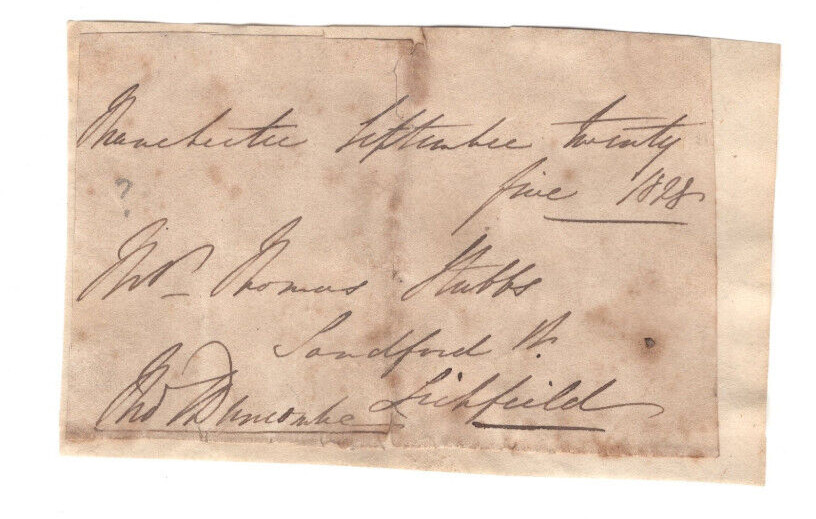 Manchester September twenty
five 1828
?
Mr Thomas Stubbs
Sandford St.
Lichfield
Thos Duncombe